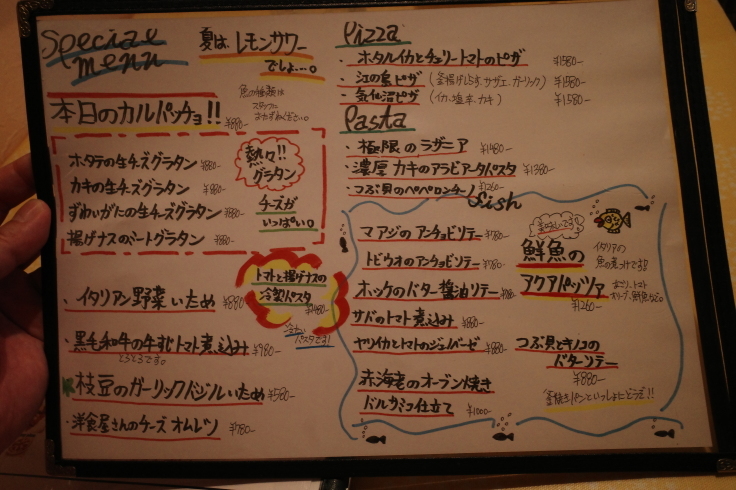 Special menu
夏は レモンサワー
でしょ…。
本日のカルパッチョ!! ¥880-
魚の種類は
スタッフに
おたずねください。
ホタテの生チーズグラタン ¥880-
カキの生チーズグラタン ¥880-
ずわいがにの生チーズグラタン ¥880-
揚げナスのミートグラタン ¥880-
熱々!!
グラタン
チーズが
いっぱい。
トマトと揚げナスの
冷製パスタ
冷たい
パスタです!
・イタリアン野菜いため ¥880
・黒毛和牛の牛すじトマト煮込み ¥980-
とろとろです。
枝豆のガーリックバジルいため ¥580-
・洋食屋さんのチーズオムレツ ¥780-
Pizza
・ホタルイカとチェリートマトのピザ ¥1580-
・江の島ピザ (釜揚げしらす、サザエ、ガーリック) ¥1580-
・気仙沼ピザ (イカ塩辛、カキ) ¥1580-
Pasta
・極限のラザニア ¥1480-
・濃厚カキのアラビアータパスタ ¥1380-
・つぶ貝のペペロンチーノ ¥1260-
Fish
マアジのアンチョビソテー ¥780-
トビウオのアンチョビソテー ¥780-
ホッケのバター醤油ソテー
サバのトマト煮込み ¥880-
ヤリイカとトマトのジェノバーゼ ¥880-
赤海老のオーブン焼き
バルサミコ仕立て ¥1000-
鮮魚の
アクアパッツァ
¥1260-
イタリアの
魚の煮つけです!!
つぶ貝とキノコの
バターソテー
¥880-
釜焼きパンといっしょにどうぞ!!